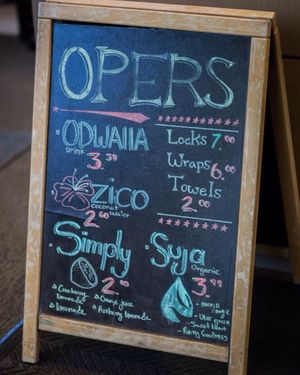 OPERS
ODWAllA
Drink
3.39
ZICO
coconut water
2.60
Simply
2.00
Cranberry lemonade
lemonade
Orange juice
Rasberry lemonade
Locks 7.00
Wraps 6.00
Towels
2.00
Suja
Organic
3.99
mango magic
Uber green
Sweet beet
Berry Goodness